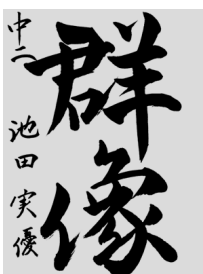 群像
中二 池田実優